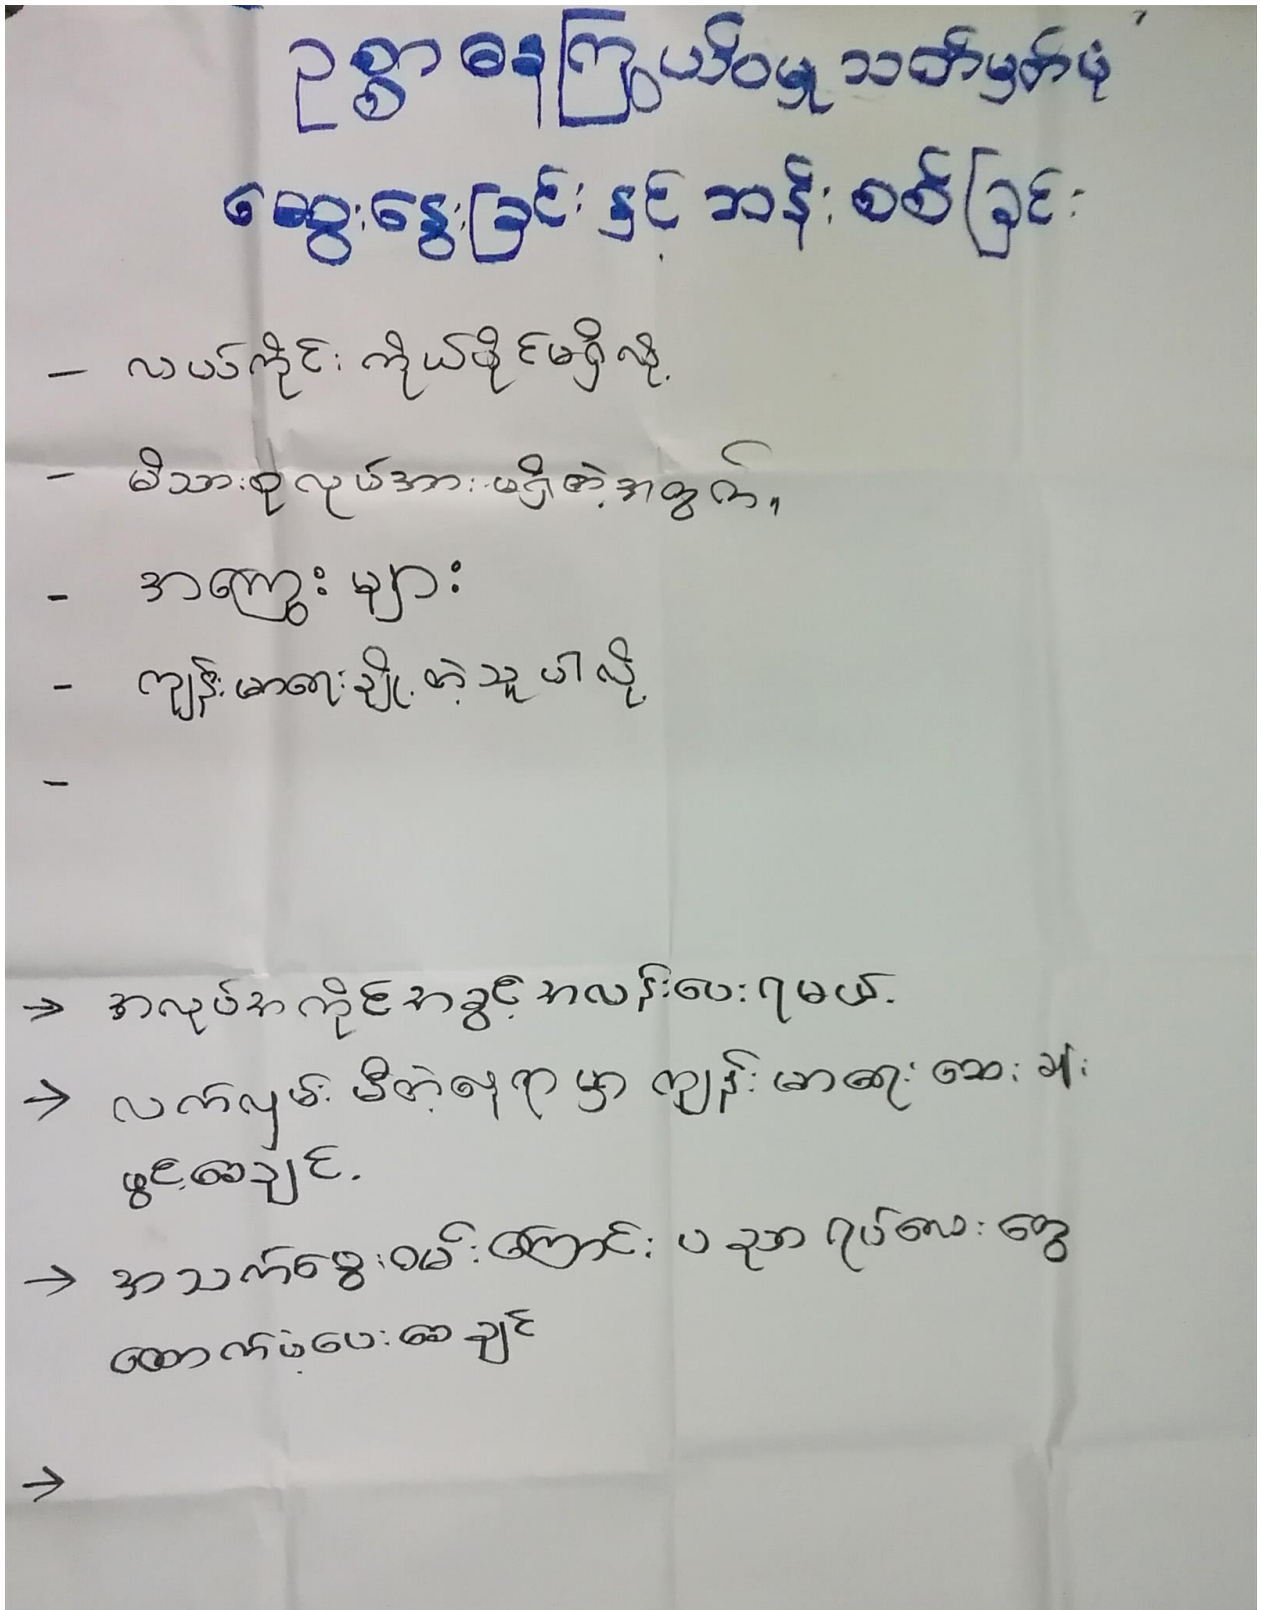 ဥစ္စာဓနကြွယ်ဝမှု သတ်မှတ်ပုံ
ဆွေးနွေးခြင်း နှင့် ဆန်းစစ်ခြင်း
– လယ်ကိုင်း ကိုယ်ပိုင်မရှိလို့
– မိသားစုလုပ်အားမရှိတဲ့အတွက်၊
– အကြွေးများ
– ကျန်းမာရေးချို့တဲ့သူပါလို့
–
→ အလုပ်အကိုင်အခွင့်အလန်းပေးရမယ်.
→ လက်လှမ်းမီတဲ့နေရာမှာ ကျန်းမာရေးဆေးခန်း
ဖွင့်စေချင်.
→ အသက်မွေးဝမ်းကြောင်း ပညာရပ်လေးတွေ
ထောက်ပံ့ပေးစေချင်
→